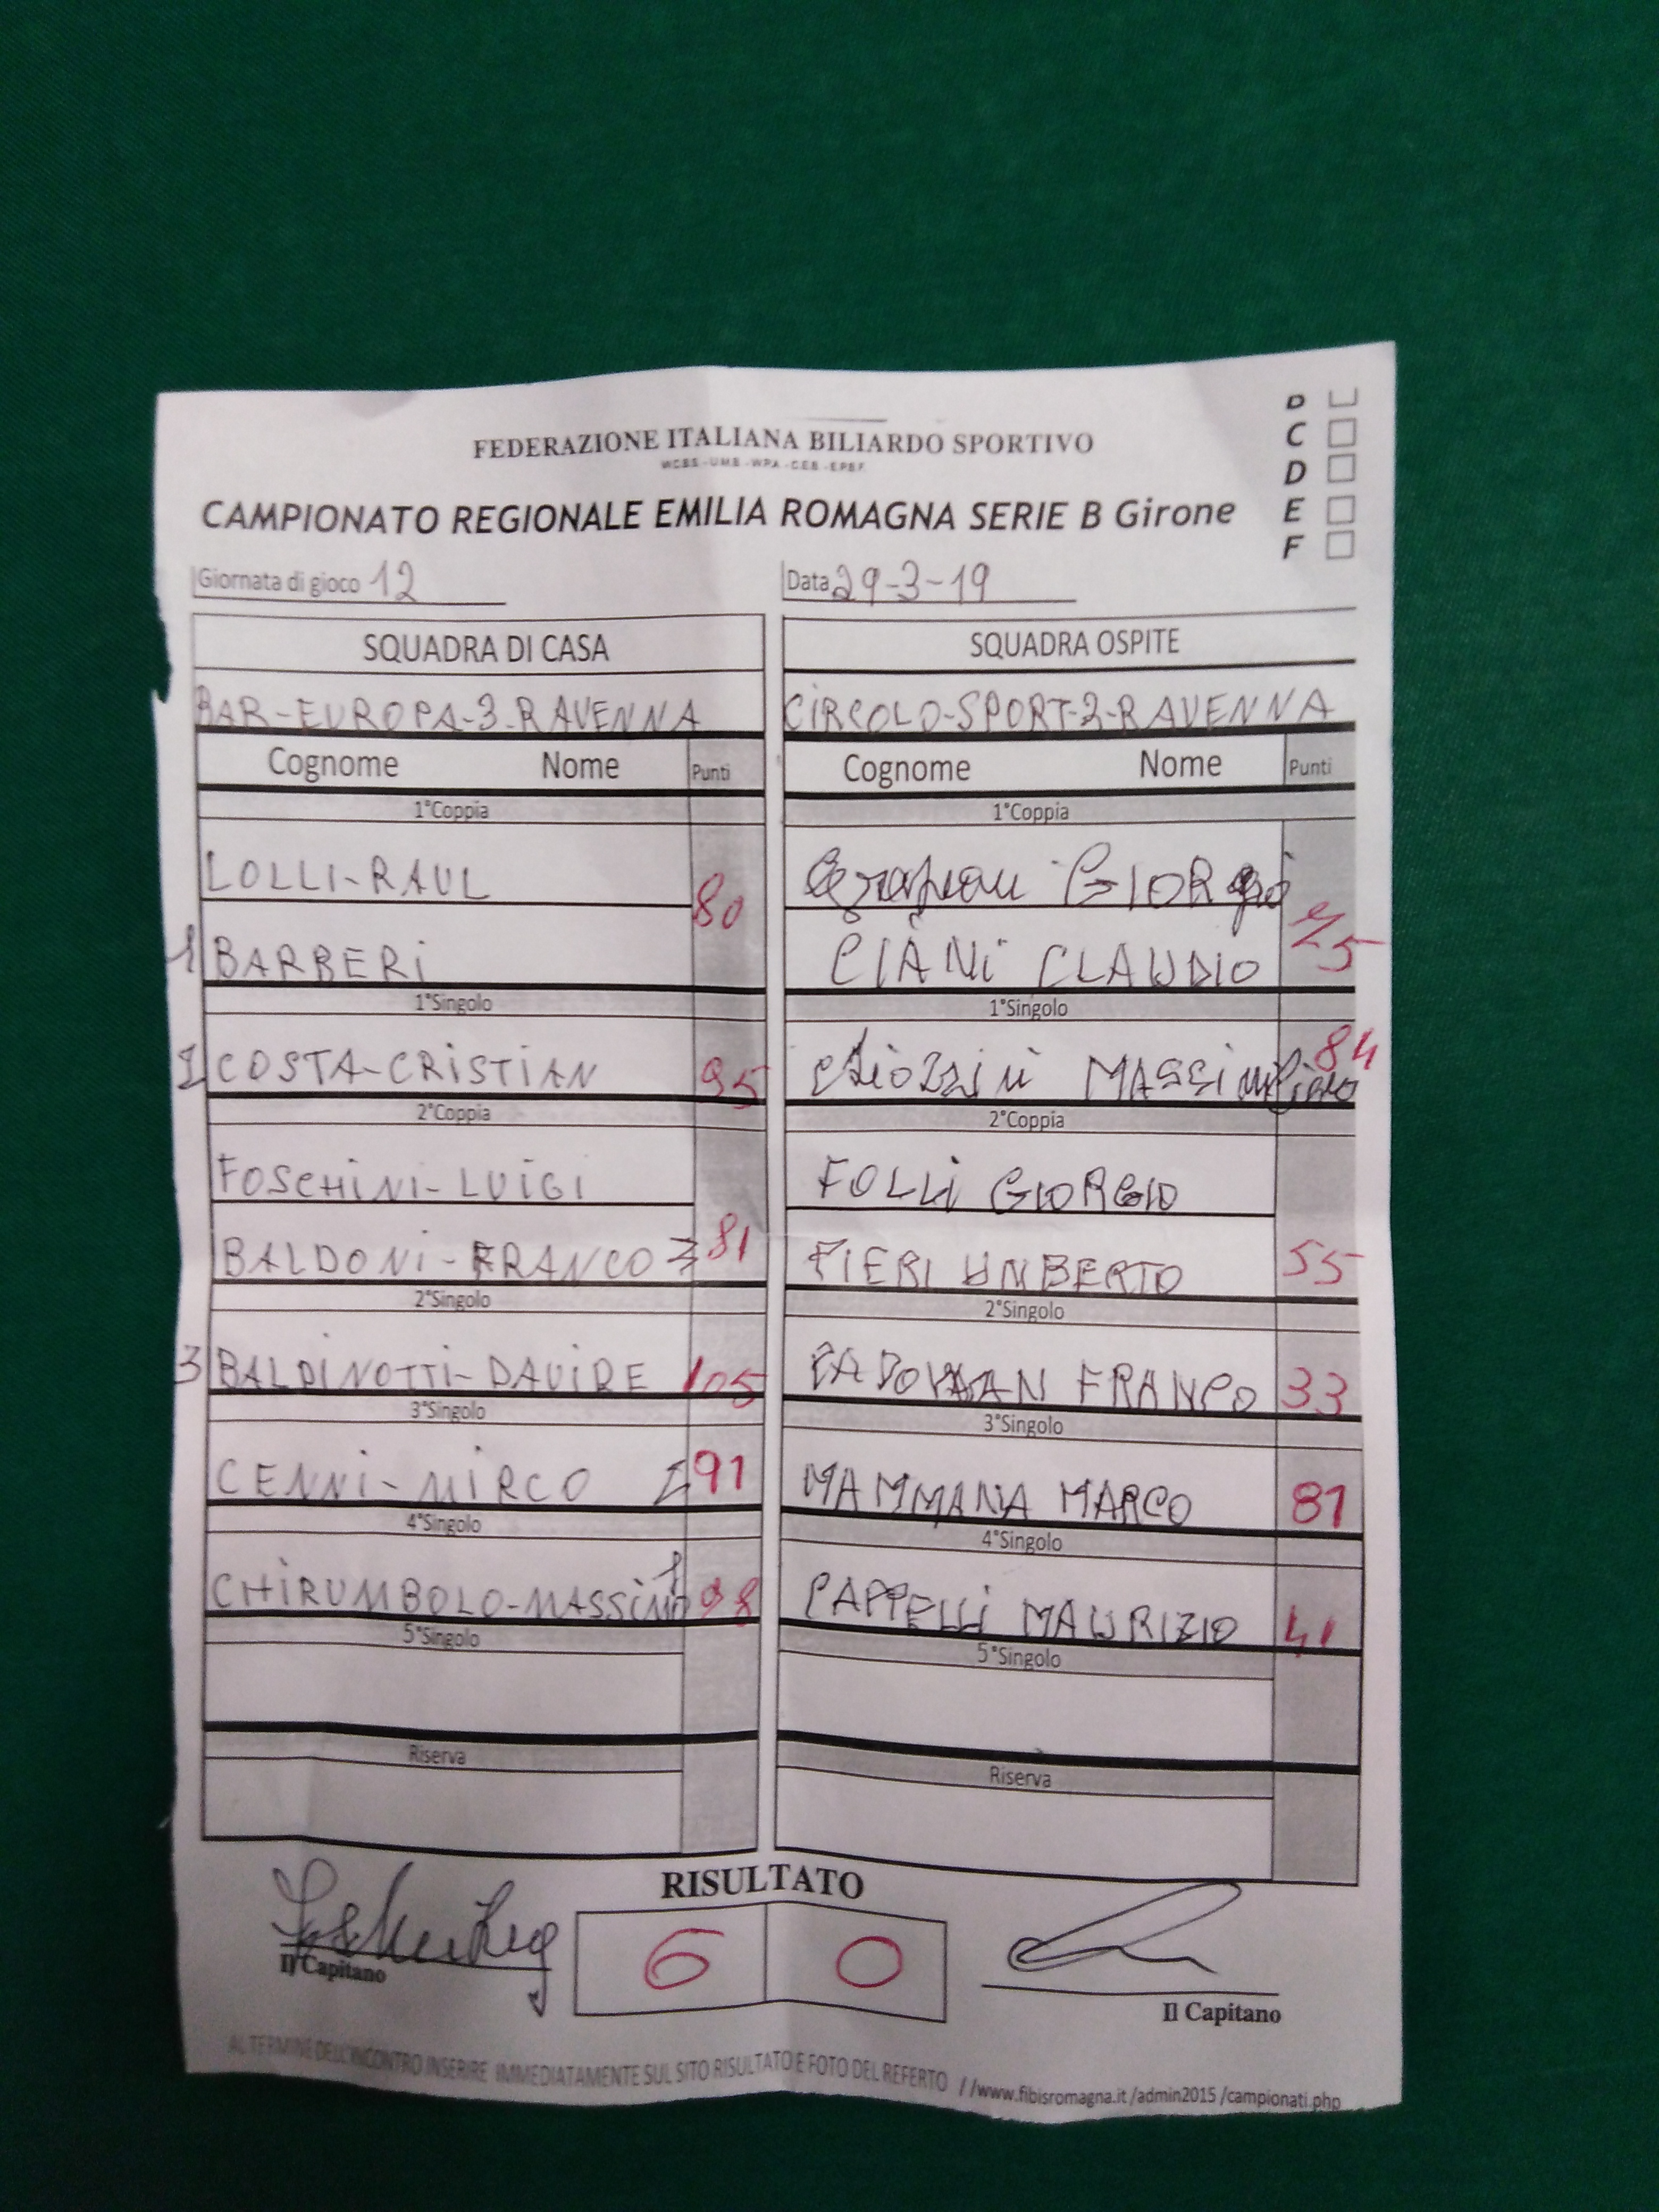 B
C
D
E
F
FEDERAZIONE ITALIANA BILIARDO SPORTIVO
WCBS - UMB - WPA - CEB - EPBF
CAMPIONATO REGIONALE EMILIA ROMAGNA SERIE B Girone
Giornata di gioco 12 Data 29-3-19
SQUADRA DI CASA SQUADRA OSPITE
BAR-EUROPA-3-RAVENNA CIRCOLO-SPORT-2-RAVENNA
Cognome Nome Punti Cognome Nome Punti
1°Coppia 1°Coppia
LOLLI-RAUL 80 GIORGIO
1 BARBERi CIANI CLAUDIO 75
1°Singolo 1°Singolo
COSTA-CRISTIAN 95 MASSIMILIANO 84
2°Coppia 2°Coppia
FOSCHINI-LUIGI FOLLI GIORGIO
BALDONI-FRANCO 81 PIERI UMBERTO 55
2°Singolo 2°Singolo
3 BALDINOTTI-DAVIDE 105 PADOVAN FRANCO 33
3°Singolo 3°Singolo
CENNI-MIRCO 91 MAMMANA MARCO 81
4°Singolo 4°Singolo
CHIRUMBOLO-MASSIMO 98 CAPPELLI MAURIZIO 41
5°Singolo 5°Singolo
Riserva Riserva
RISULTATO
6 0
Il Capitano Il Capitano
AL TERMINE DELL'INCONTRO INSERIRE IMMEDIATAMENTE SUL SITO RISULTATO E FOTO DEL REFERTO //www.fibisromagna.it /admin2015 /campionati.php